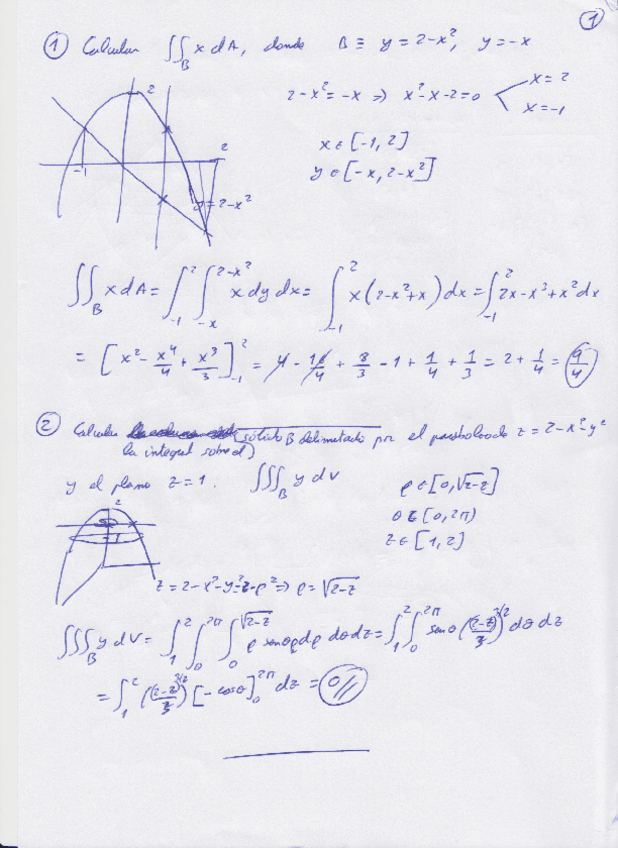 ①
① Calcular ∬_B x dA, donde B ≡ y = 2-x², y = -x
2-x² = -x ⇒ x²-x-2=0 x=2
x=-1
x ∈ [-1, 2]
y ∈ [-x, 2-x²]
2
2
-1
y=2-x²
∬_B x dA = ∫_{-1}^{2} ∫_{-x}^{2-x²} x dy dx = ∫_{-1}^{2} x(2-x²+x) dx = ∫_{-1}^{2} 2x-x³+x² dx
= [x² - x⁴/4 + x³/3]_{-1}^{2} = 4 - 16/4 + 8/3 - 1 + 1/4 + 1/3 = 2 + 1/4 = 9/4
② Calcular (sólido B delimitado por el paraboloide z = 2-x²-y²
la integral sobre el)
y el plano z = 1. ∭_B y dV
ρ ∈ [0, √2-z]
θ ∈ [0, 2π]
z ∈ [1, 2]
2
1
z = 2-x²-y² = 2-ρ² ⇒ ρ = √2-z
∭_B y dV = ∫_1^2 ∫_0^{2π} ∫_0^{√2-z} ρ senθ ρ dρ dθ dz = ∫_1^2 ∫_0^{2π} senθ ((2-z)^{3/2}/3) dθ dz
= ∫_1^2 ((2-z)^{3/2}/3) [-cosθ]_0^{2π} dz = 0//